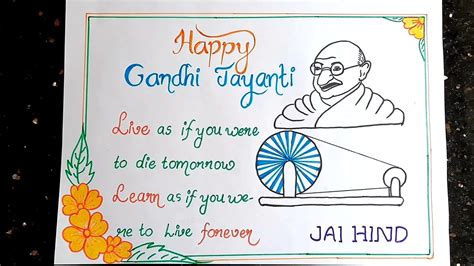 Happy
Gandhi Jayanti
Live as if you were
to die tomorrow
Learn as if you we-
re to Live forever
JAI HIND